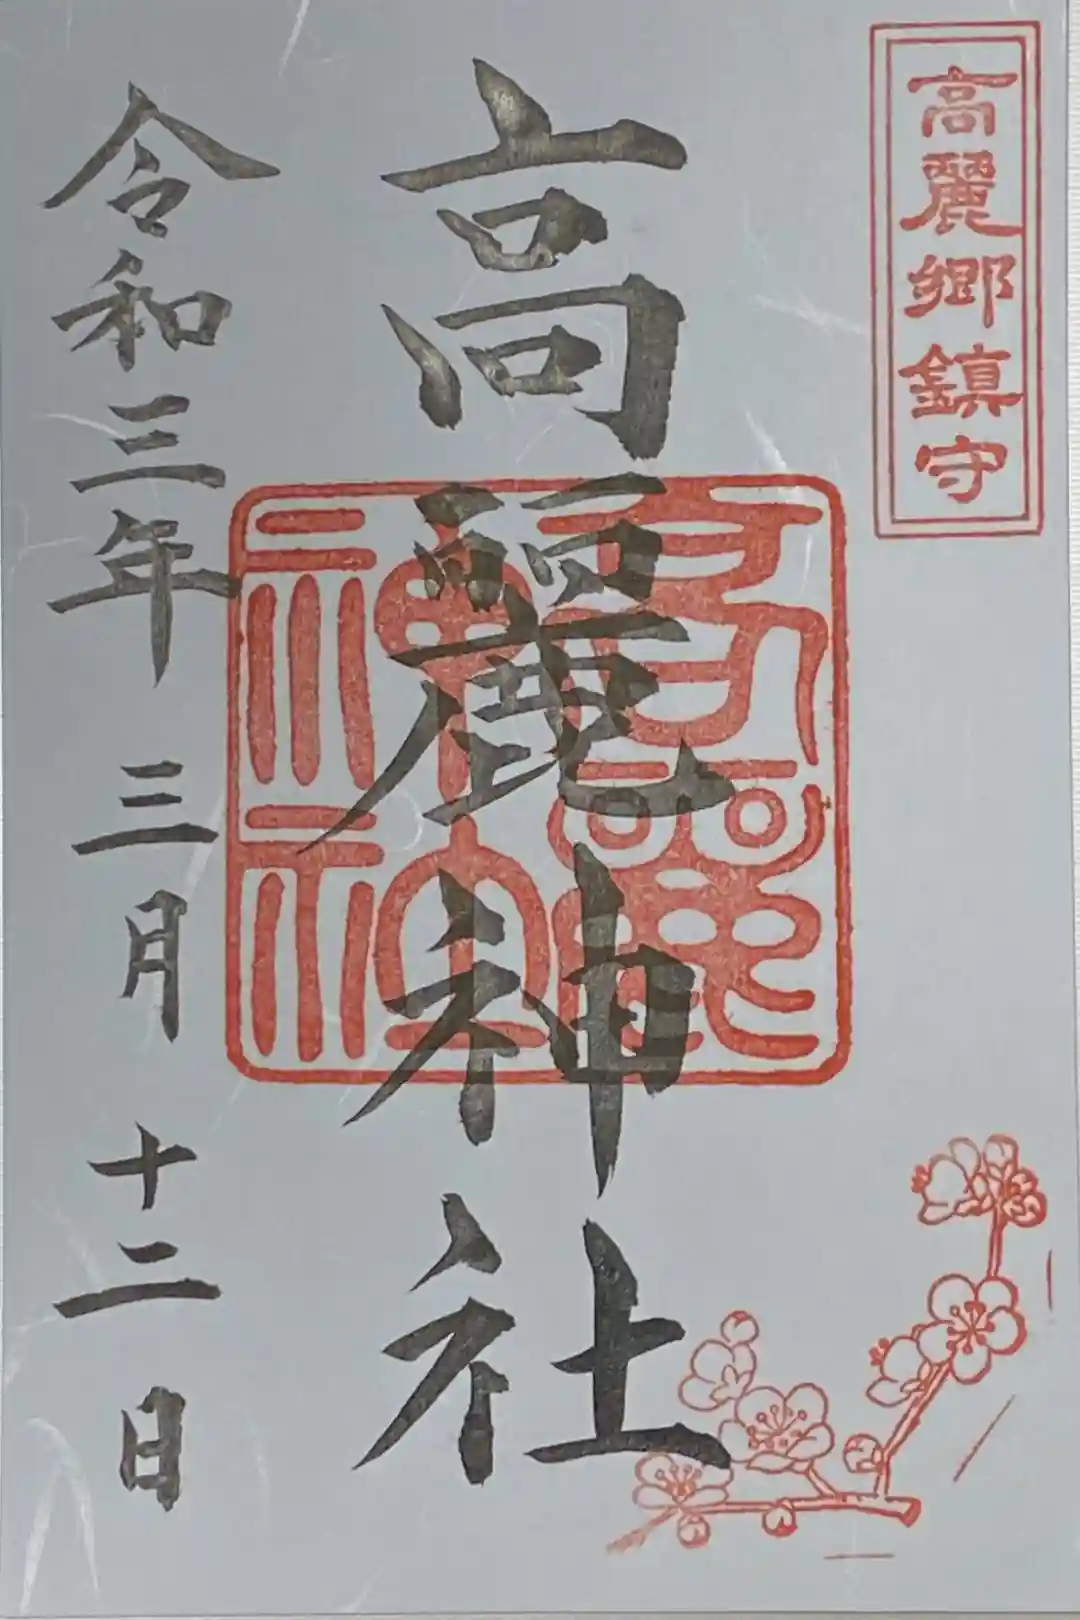 高麗郷鎮守
高麗神社
高麗神社
令和三年 三月 十二日